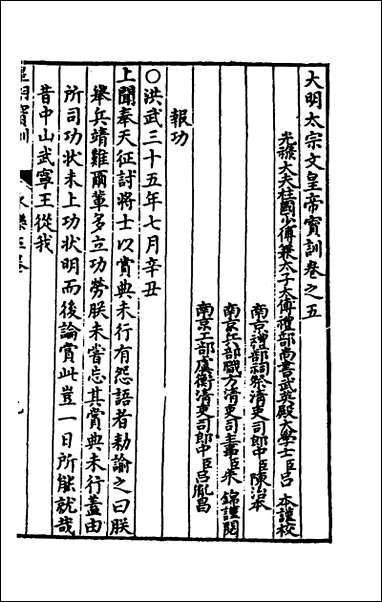 大明太宗文皇帝寶訓卷之五
光祿大夫柱國少傅兼太子太傅禮部尚書武英殿大學士臣呂 本謹校
南京禮部祠祭清吏司郎中臣陳治本
南京兵部職方清吏司主事臣朱 錦謹閱
南京工部虞衡清吏司郎中臣呂胤昌
報功
○洪武三十五年七月辛丑
上聞奉天征討將士以賞典未行有怨語者勑諭之曰朕
舉兵靖難爾輩多立功勞朕未嘗忘其賞典未行蓋由
所司功狀未上功狀明而後論賞此豈一日所能就哉
昔中山武寧王從我
皇明寶訓 永樂五卷